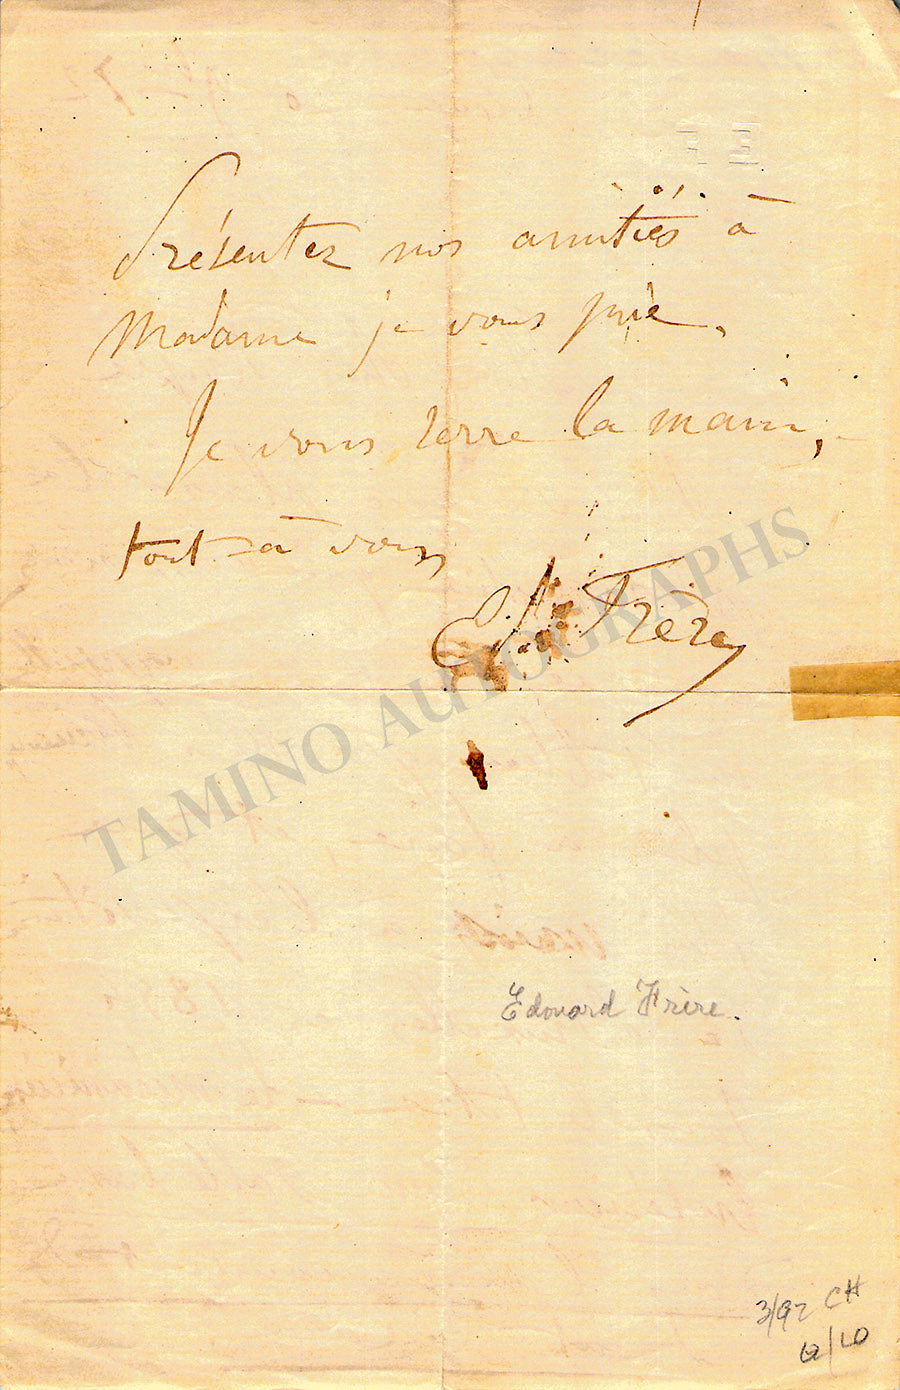 Présentez nos amitiés à
Madame je vous prie.
Je vous serre la main,
tout à vous
Ed. Frère
TAMINO AUTOGRAPHS
Edouard Frère.
3/92 CH